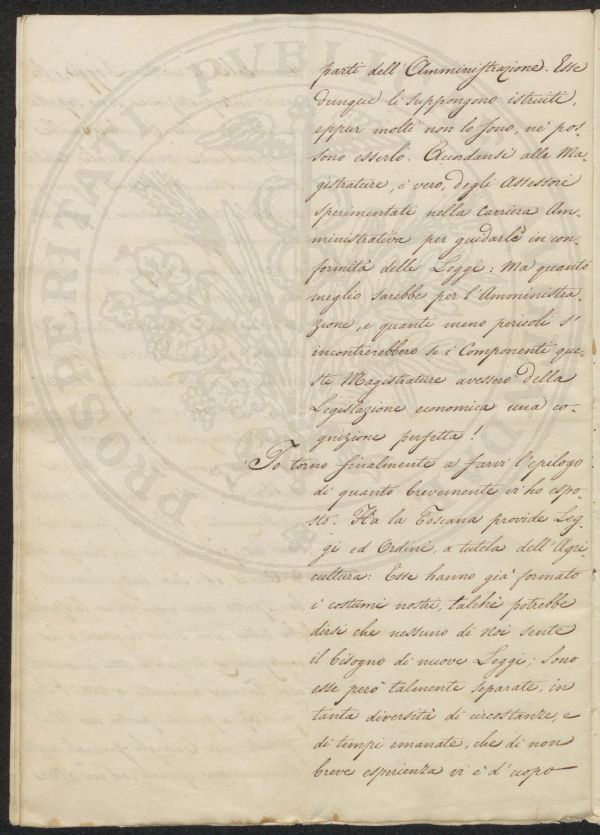 parti dell'Amministrazione. Esse
dunque li suppongono istruiti,
eppur molti non lo sono, nè pos-
sono esserlo. Accordansi alle Ma-
gistrature, è vero, degli Assessori
sperimentati nella Carriera Am-
ministrativa per guidarle in con-
formità delle Leggi: Ma quanto
meglio sarebbe per l'Amministra-
zione, e quanti meno pericoli s'
incontrerebbero se i Componenti que-
ste Magistrature avessero della
Legislazione economica una co-
gnizione perfetta!
Io torno finalmente a farvi l'epilogo
di quanto brevemente vi ho espo-
sto. Ha la Toscana provide Leg-
gi ed Ordini, a tutela dell'Agri
cultura: Esse hanno già formato
i costumi nostri, talchè potrebbe
dirsi che nessuno di Noi sente
il bisogno di nuove Leggi; Sono
esse però talmente separate, in
tanta diversità di circostanze, e
di tempi emanate, che di non
breve esperienza vi è d'uopo
PROSPERITATI PUBL